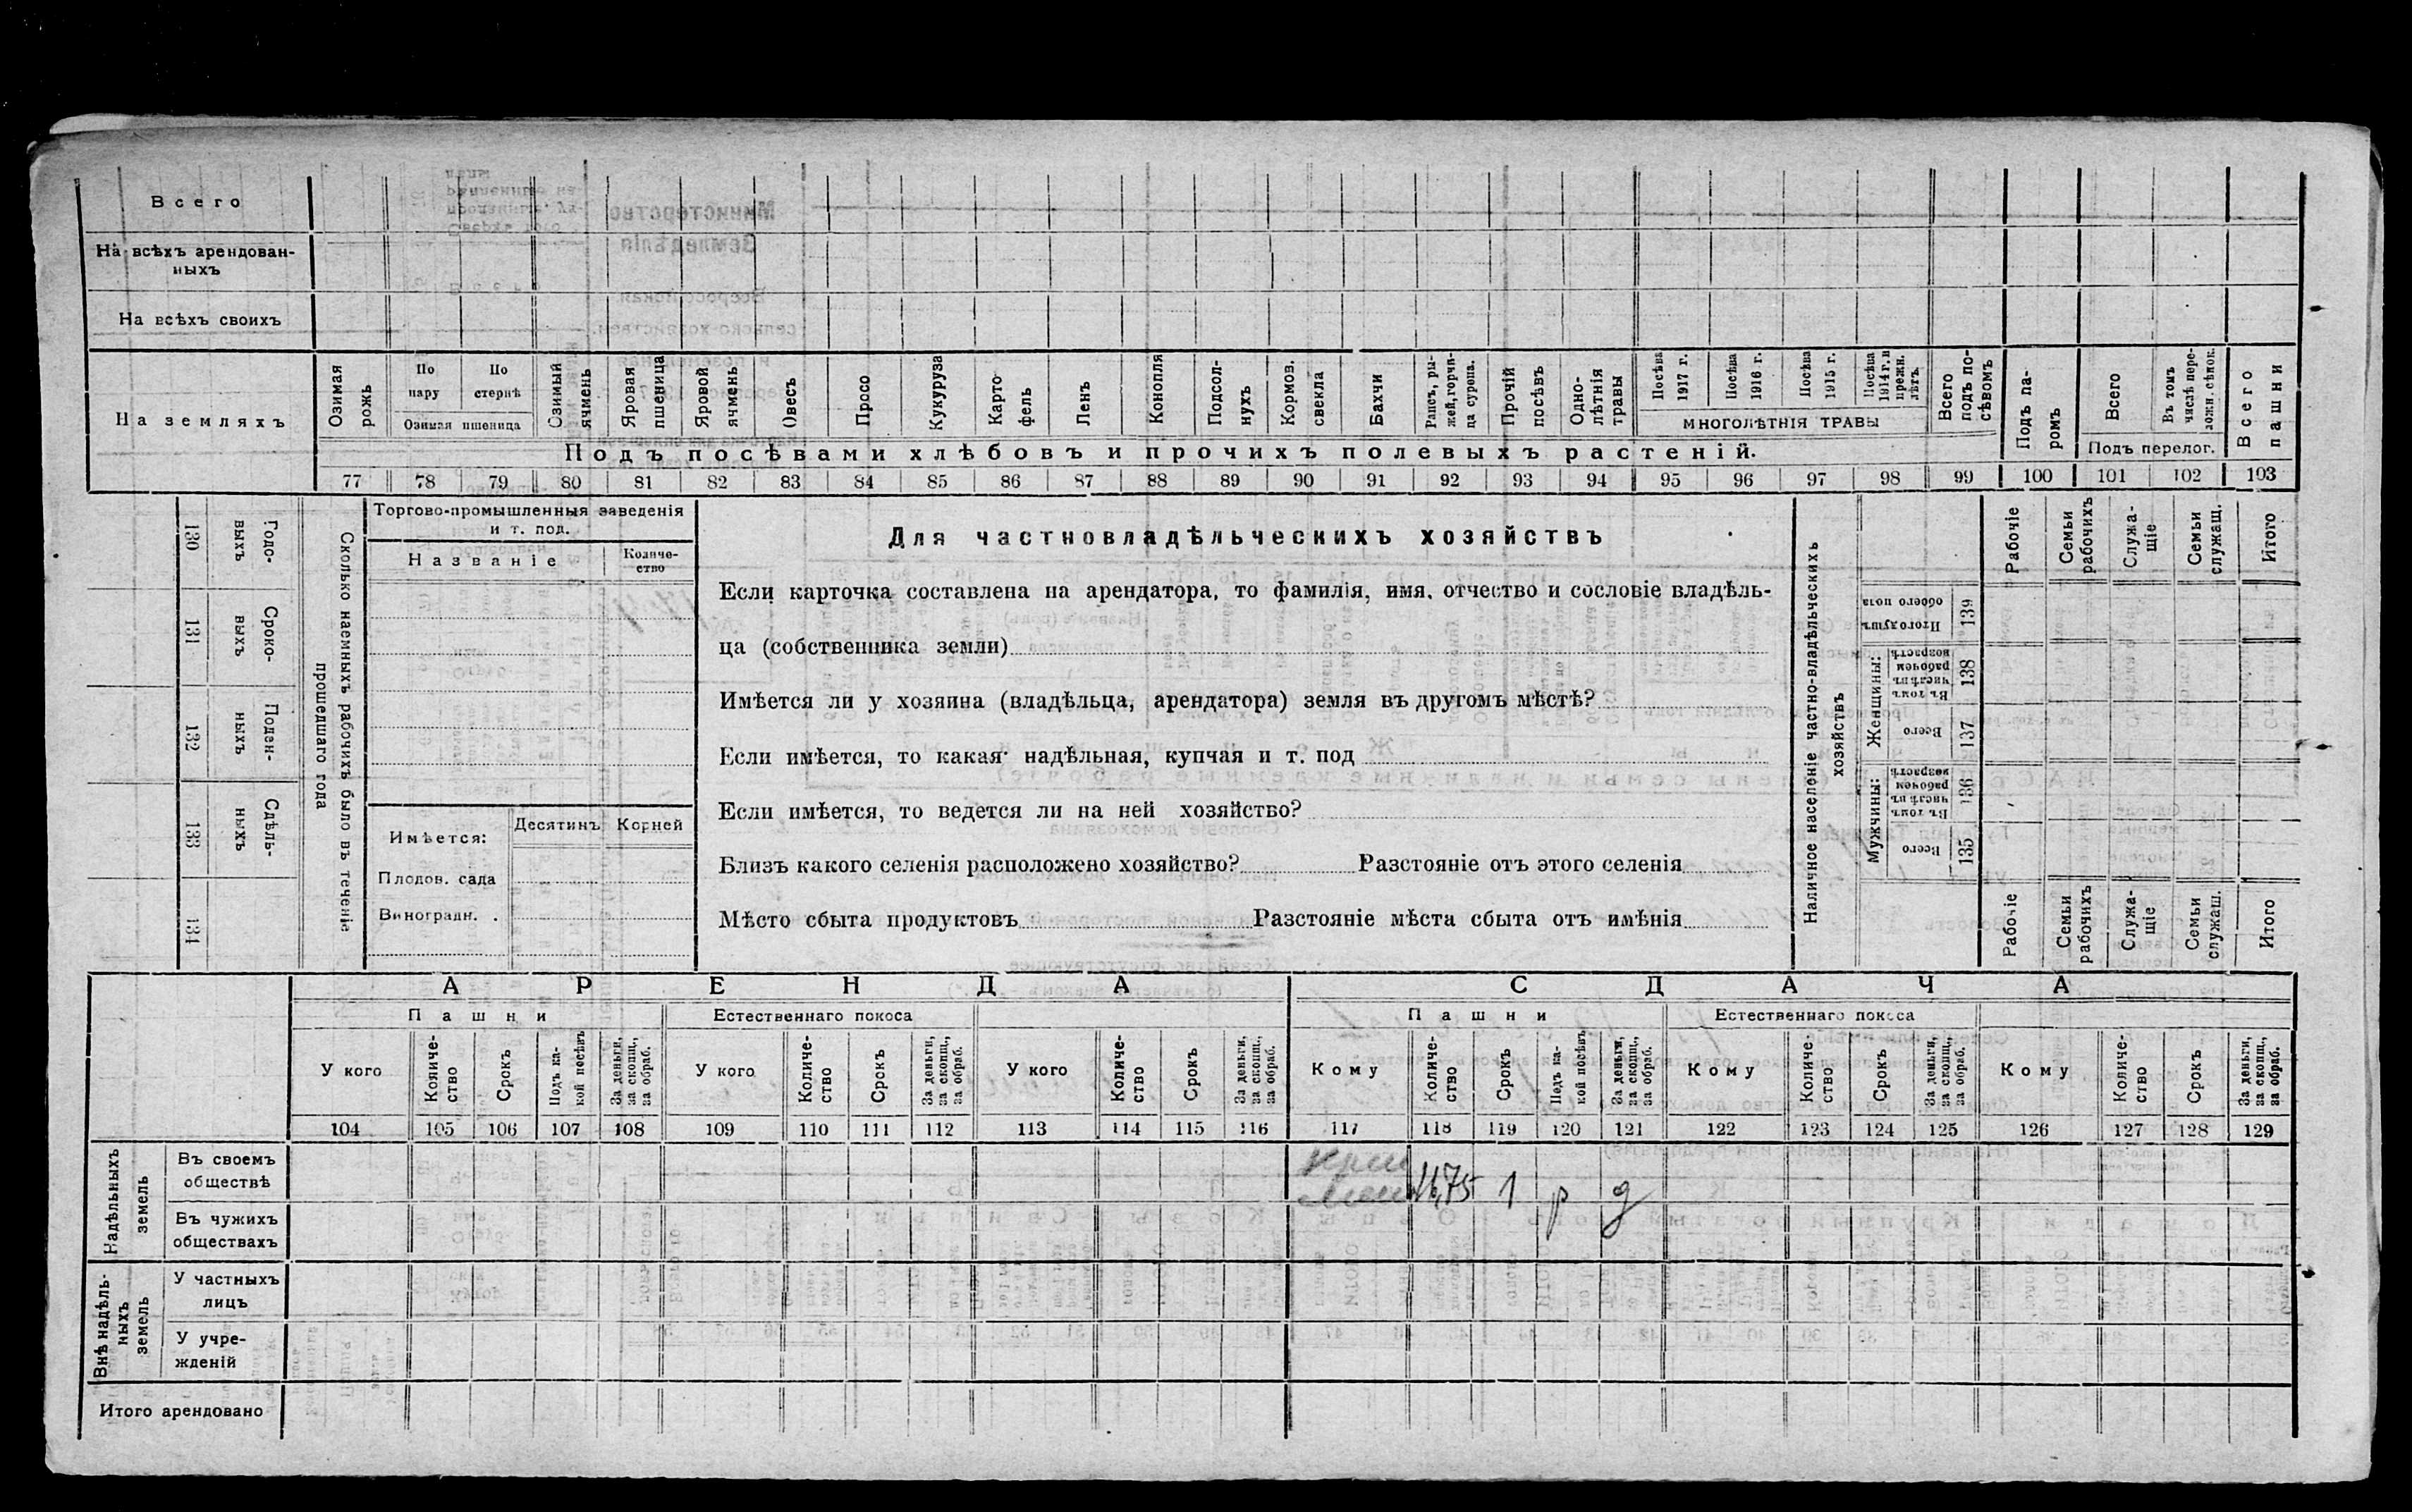 Всего
На всѣхъ арендован-
ныхъ
На всѣхъ своихъ
На земляхъ
Озимая рожь
По пару
По стернѣ
Озимая пшеница
Озимый ячмень
Яровая пшеница
Яровой ячмень
Овесъ
Просо
Кукуруза
Карто
фель
Ленъ
Конопля
Подсол-
нухъ
Кормов. свекла
Бахчи
Рапсъ, ры-
жей, горчи-
ца сурепа.
Прочій посѣвъ
Одно-
лѣтнія травы
Посѣва 1917 г.
Посѣва 1916 г.
Посѣва 1915 г.
Посѣва 1914 г. и прежн. лѣтъ.
МНОГОЛѢТНІЯ ТРАВЫ
Всего подъ по-
сѣвомъ
Подъ па-
ромъ
Всего
Въ томъ числѣ пере-
ложн. сѣнок.
Подъ перелог.
Всего пашни
Подъ посѣвами хлѣбовъ и прочихъ полевыхъ растеній.
77 78 79 80 81 82 83 84 85 86 87 88 89 90 91 92 93 94 95 96 97 98 99 100 101 102 103
130 Годо-
выхъ
131 Сроко-
выхъ
132 Поден-
ныхъ
133 Сдѣль-
ныхъ
134
Сколько наемныхъ рабочихъ было въ теченіе
прошедшаго года
Торгово-промышленныя заведенія
и т. под.
Названіе
Количе-
ство
Имѣется:
Десятинъ Корней
Плодов. сада
Виноградн. .
Для частновладѣльческихъ хозяйствъ
Если карточка составлена на арендатора, то фамилія, имя, отчество и сословіе владѣль-
ца (собственника земли)
Имѣется ли у хозяина (владѣльца, арендатора) земля въ другомъ мѣстѣ?
Если имѣется, то какая надѣльная, купчая и т. под
Если имѣется, то ведется ли на ней хозяйство?
Близъ какого селенія расположено хозяйство? Разстояніе отъ этого селенія
Мѣсто сбыта продуктовъ Разстояніе мѣста сбыта отъ имѣнія
Наличное населеніе частно-владѣльческихъ
хозяйствъ
Рабочіе
Семьи рабочихъ
Служа-
щіе
Семьи служащ.
Итого
Итого душъ обоего пола 139
Женщины:
Въ томъ числѣ въ рабочем возрастѣ 138
Всего 137
Мужчины:
Въ томъ числѣ въ рабочем возрастѣ 136
Всего 135
Рабочіе
Семьи рабочихъ
Служа-
щіе
Семьи служащ.
Итого
АРЕНДА
СДАЧА
Пашни
Естественнаго покоса
Пашни
Естественнаго покоса
У кого
Количе-
ство
Срокъ
Подъ ка-
кой посѣвъ
За деньги, за скопщ., за обраб.
У кого
Количе-
ство
Срокъ
За деньги, за скопщ., за обраб.
У кого
Количе-
ство
Срокъ
За деньги, за скопщ., за обраб.
Кому
Количе-
ство
Срокъ
Подъ ка-
кой посѣвъ
За деньги, за скопщ., за обраб.
Кому
Количе-
ство
Срокъ
За деньги, за скопщ., за обраб.
Кому
Количе-
ство
Срокъ
За деньги, за скопщ., за обраб.
104 105 106 107 108 109 110 111 112 113 114 115 116 117 118 119 120 121 122 123 124 125 126 127 128 129
Надѣльныхъ
земель
Въ своемъ
обществѣ
1 р д
Въ чужихъ
обществахъ
Внѣ надѣль-
ныхъ
земель
У частныхъ
лицъ
У учре-
жденій
Итого арендовано